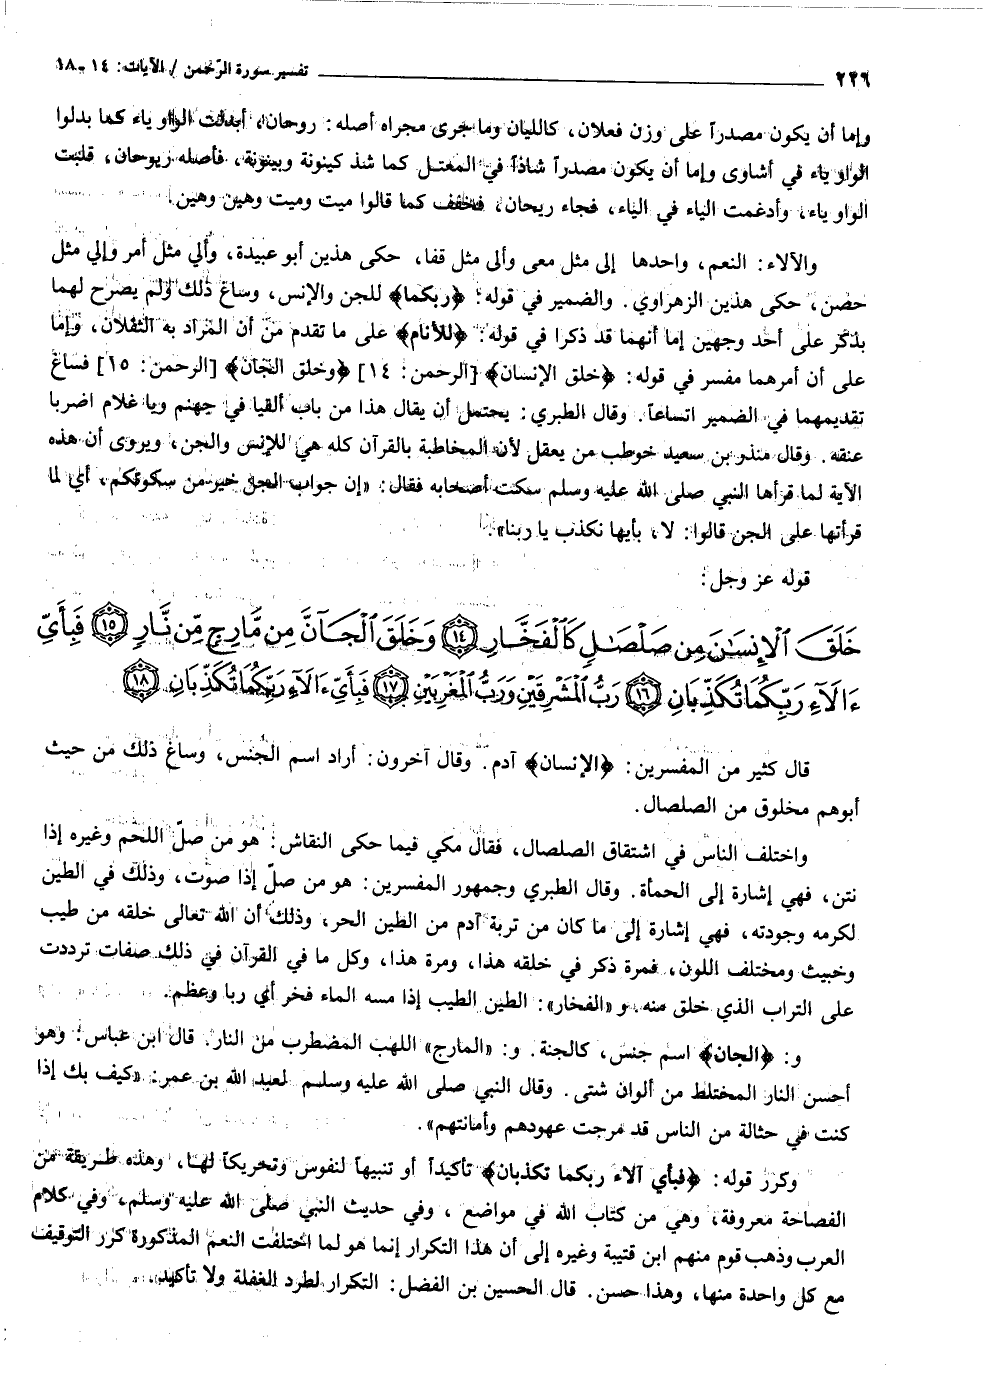 ٢٢٦ تفسير سورة الرّحمن / الآيات: ١٤ ـ ١٨
وإما أن يكون مصدراً على وزن فعلان، كالليان وما جرى مجراه أصله: روحان، أبدلت الواو ياء كما بدلوا
الواو ياء في أشاوى وإما أن يكون مصدراً شاذاً في المعتل كما شذ كينونة وبينونة، فأصله ريوحان، قلبت
الواو ياء، وأدغمت الياء في الياء، فجاء ريحان، فخفف كما قالوا ميت وميت وهين وهين.
والآلاء: النعم، واحدها إلى مثل معى وألى مثل قفا، حكى هذين أبو عبيدة، وألي مثل أمر وإلي مثل
حصن، حكى هذين الزهراوي. والضمير في قوله: ﴿ربكما﴾ للجن والإنس، وساغ ذلك ولم يصرح لهما
بذكر على أحد وجهين إما أنهما قد ذكرا في قوله: ﴿للأنام﴾ على ما تقدم من أن المراد به الثقلان، وإما
على أن أمرهما مفسر في قوله: ﴿خلق الإنسان﴾ [الرحمن: ١٤] ﴿وخلق الجان﴾ [الرحمن: ١٥] فساغ
تقديمهما في الضمير اتساعاً. وقال الطبري: يحتمل أن يقال هذا من باب ألقيا في جهنم ويا غلام اضربا
عنقه. وقال منذر بن سعيد خوطب من يعقل لأن المخاطبة بالقرآن كله هي للإنس والجن، ويروى أن هذه
الآية لما قرأها النبي صلى الله عليه وسلم سكت أصحابه فقال: «إن جواب الجن خير من سكوتكم، أي لما
قرأتها على الجن قالوا: لا، بأيها نكذب يا ربنا».
قوله عز وجل:
خَلَقَ ٱلْإِنسَٰنَ مِن صَلْصَٰلٍ كَٱلْفَخَّارِ ١٤ وَخَلَقَ ٱلْجَآنَّ مِن مَّارِجٍ مِّن نَّارٍ ١٥ فَبِأَيِّ
ءَالَآءِ رَبِّكُمَا تُكَذِّبَانِ ١٦ رَبُّ ٱلْمَشْرِقَيْنِ وَرَبُّ ٱلْمَغْرِبَيْنِ ١٧ فَبِأَيِّ ءَالَآءِ رَبِّكُمَا تُكَذِّبَانِ ١٨
قال كثير من المفسرين: ﴿الإنسان﴾ آدم. وقال آخرون: أراد اسم الجنس، وساغ ذلك من حيث
أبوهم مخلوق من الصلصال.
واختلف الناس في اشتقاق الصلصال، فقال مكي فيما حكى النقاش: هو من صلّ اللحم وغيره إذا
نتن، فهي إشارة إلى الحمأة. وقال الطبري وجمهور المفسرين: هو من صلّ إذا صوّت، وذلك في الطين
لكرمه وجودته، فهي إشارة إلى ما كان من تربة آدم من الطين الحر، وذلك أن الله تعالى خلقه من طيب
وخبيث ومختلف اللون، فمرة ذكر في خلقه هذا، ومرة هذا، وكل ما في القرآن في ذلك صفات ترددت
على التراب الذي خلق منه. و «الفخار»: الطين الطيب إذا مسه الماء فخر أي ربا وعظم.
و: ﴿الجان﴾ اسم جنس، كالجنة. و: «المارج» اللهب المضطرب من النار. قال ابن عباس: وهو
أحسن النار المختلط من ألوان شتى. وقال النبي صلى الله عليه وسلم لعبد الله بن عمر: «كيف بك إذا
كنت في حثالة من الناس قد مرجت عهودهم وأمانتهم».
وكرر قوله: ﴿فبأي آلاء ربكما تكذبان﴾ تأكيداً أو تنبيهاً لنفوس وتحريكاً لها، وهذه طريقة من
الفصاحة معروفة، وهي من كتاب الله في مواضع، وفي حديث النبي صلى الله عليه وسلم، وفي كلام
العرب وذهب قوم منهم ابن قتيبة وغيره إلى أن هذا التكرار إنما هو لما اختلفت النعم المذكورة كرر التوقيف
مع كل واحدة منها، وهذا حسن. قال الحسين بن الفضل: التكرار لطرد الغفلة ولا تأكيد.